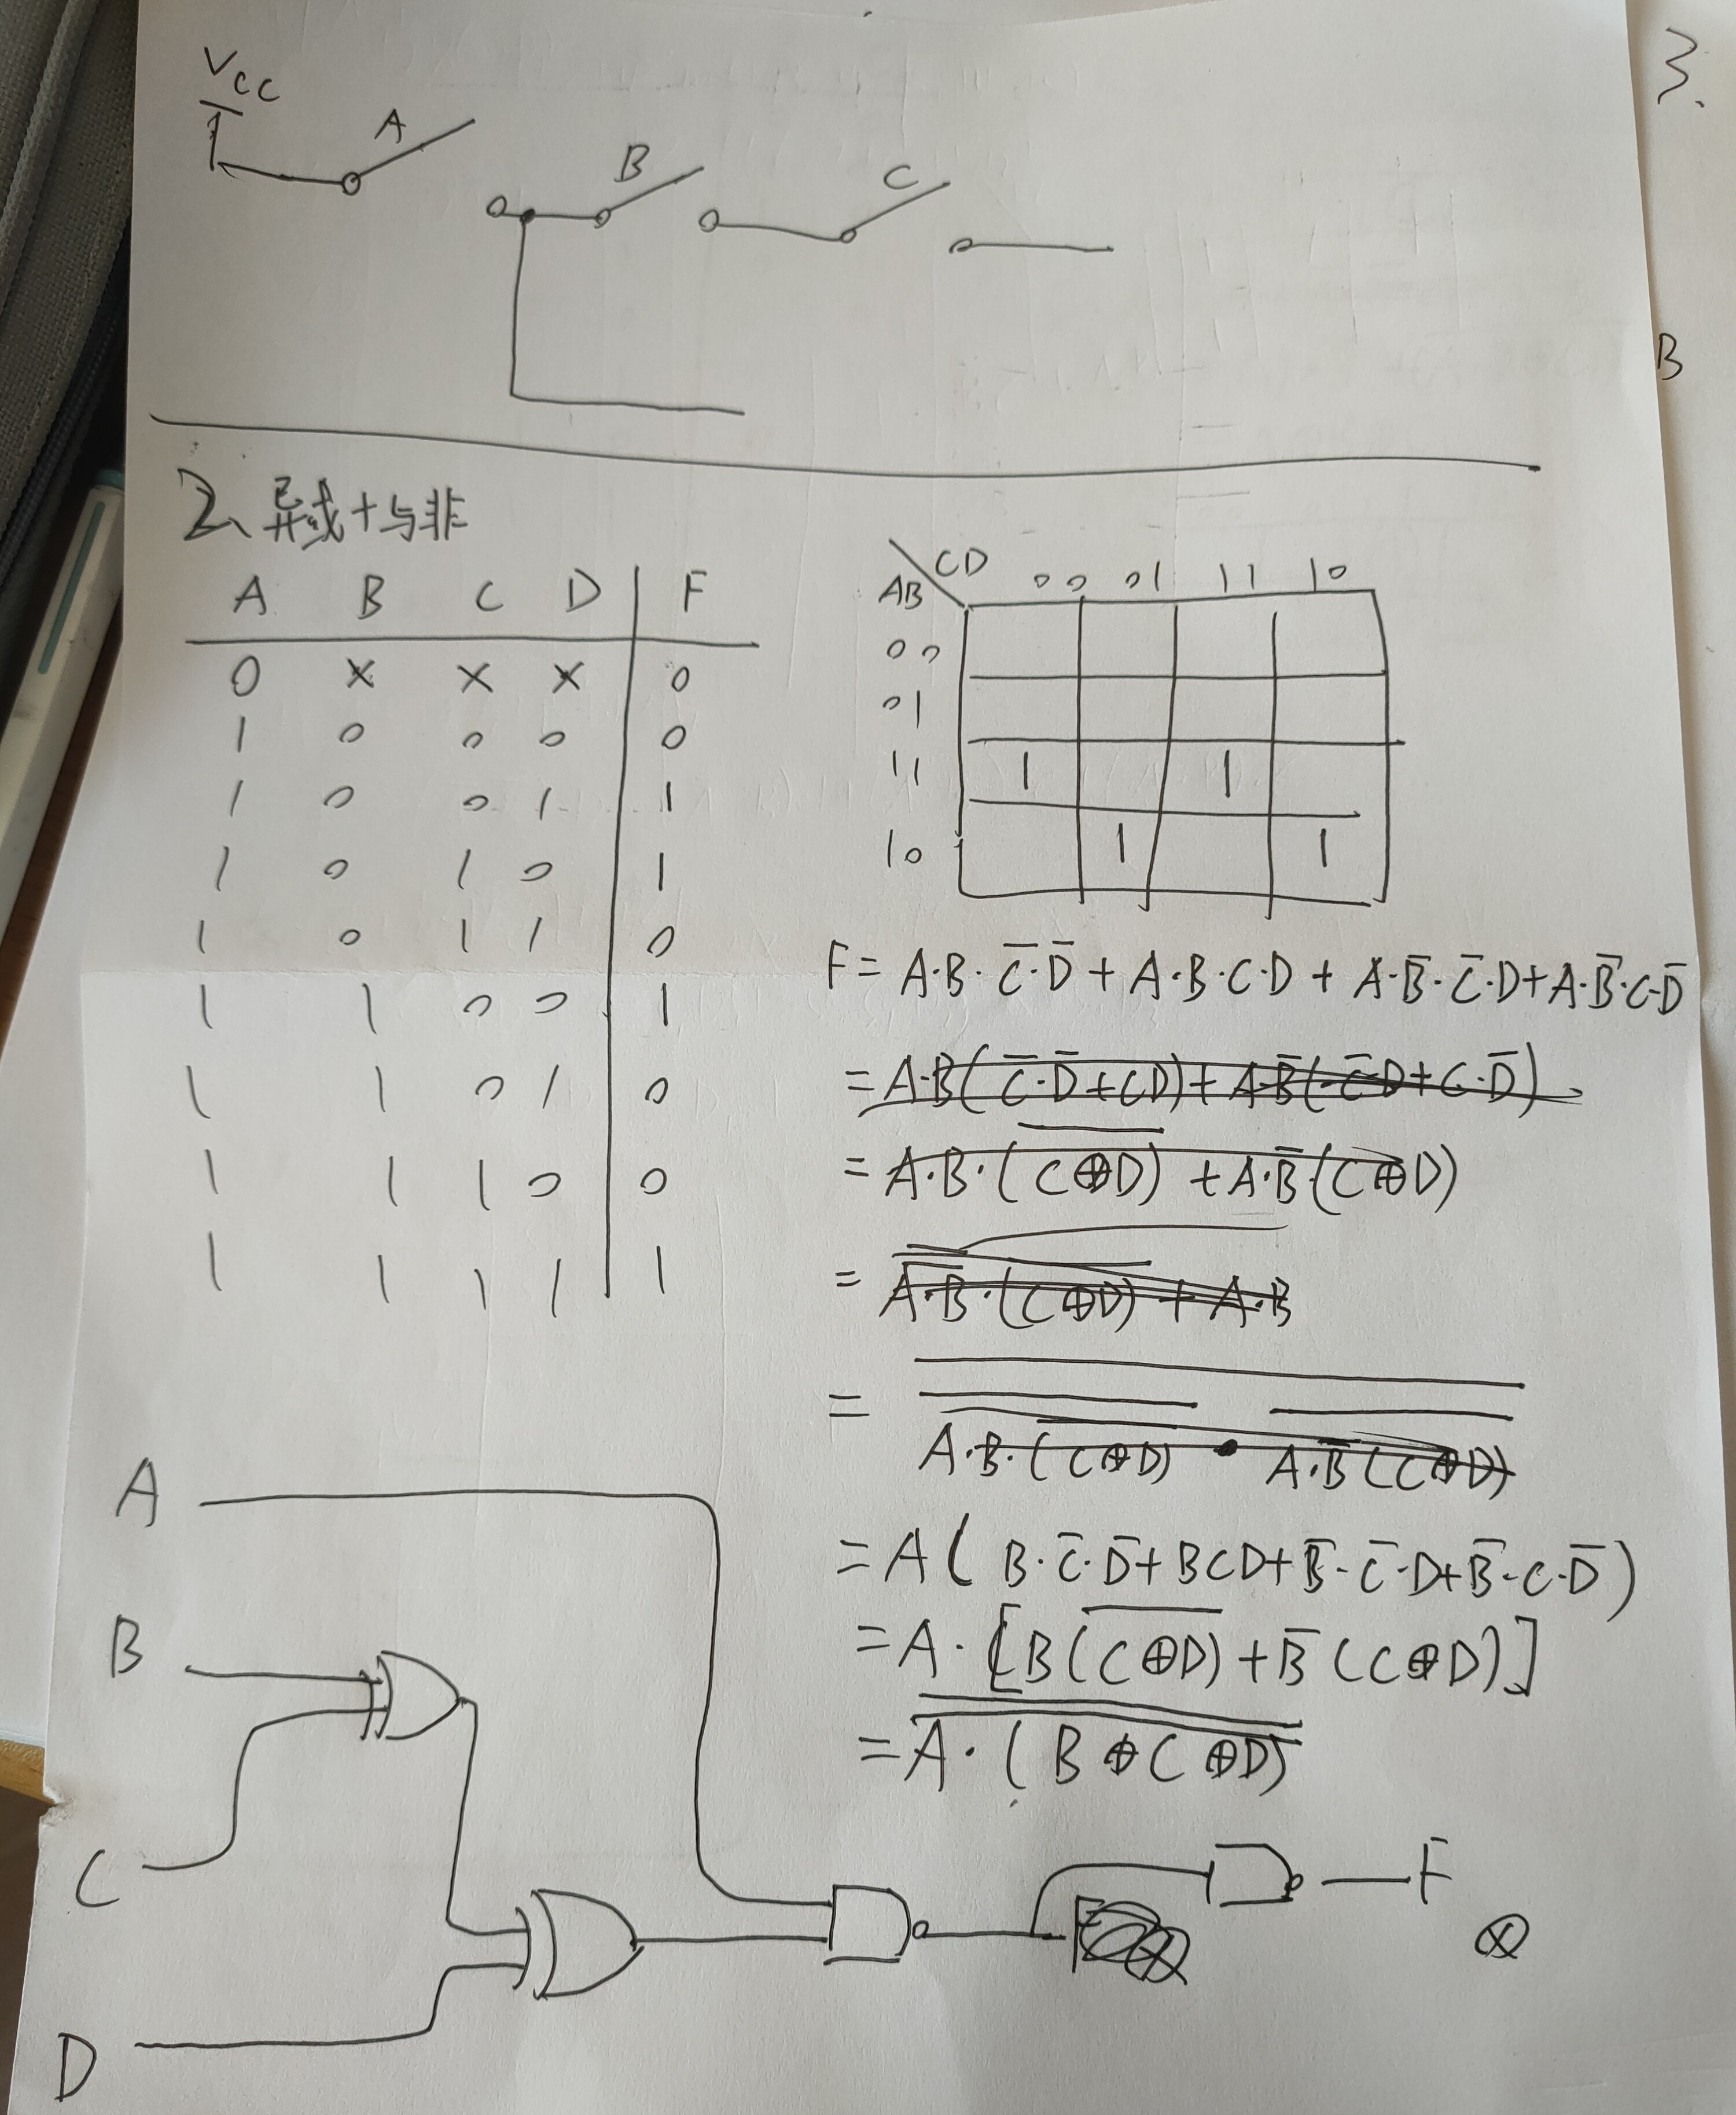 Vcc
A
B
C
3.
B
2、异或+与非
A B C D F
0 × × × 0
1 0 0 0 0
1 0 0 1 1
1 0 1 0 1
1 0 1 1 0
1 1 0 0 1
1 1 0 1 0
1 1 1 0 0
1 1 1 1 1
CD
AB
00 01 11 10
00
01
11 1 1
10 1 1
F = A·B·C̅·D̅ + A·B·C·D + A·B̅·C̅·D + A·B̅·C·D̅
= A·B(C̅·D̅+CD)+A·B̅(C̅·D+C·D̅)
= A·B·(C̅⊕D̅) + A·B̅·(C⊕D)
= A·B·(C⊕D) + A·B
= A·B·(C⊕D) · A·B̅(C⊕D)
= A(B·C̅·D̅+BCD+B̅·C̅·D+B̅·C·D̅)
= A·[B(\overline{C⊕D})+B̅(C⊕D)]
= A·(B⊕C⊕D)
A
B
C
D
F
⊗